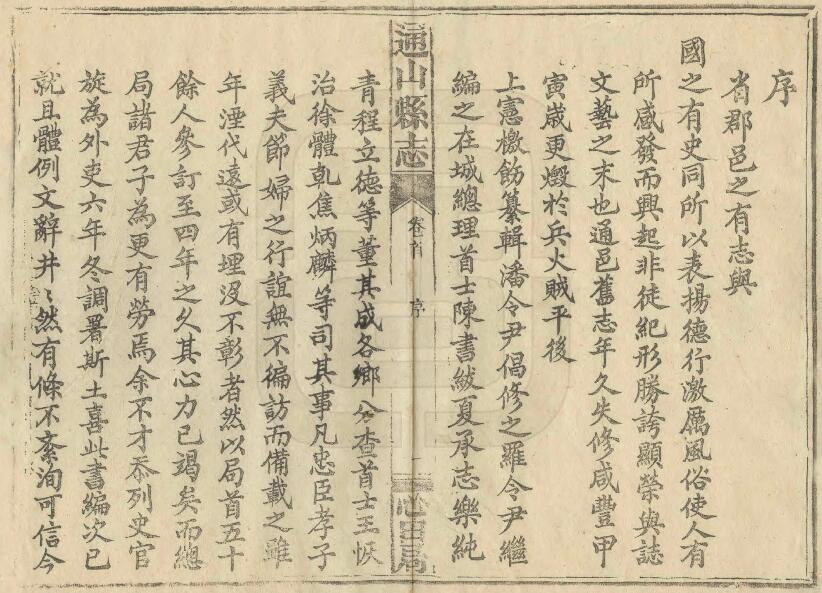 序
省郡邑之有志與
國之有史同所以表揚德行激厲風俗使人有
所感發而興起非徒紀形勝誇顯榮與誌
文藝之末也通邑舊志年久失修咸豐甲
寅歲更燬於兵火賊平後
上憲檄飭纂輯潘令尹倡修之羅令尹繼
編之在城總理首士陳書紱夏承志樂純
通山縣志
卷首
序
一
心田局
青程立德等董其成各鄉分查首士王恢
治徐體乹焦炳麟等司其事凡忠臣孝子
義夫節婦之行誼無不徧訪而備載之雖
年湮代遠或有埋沒不彰者然以局首五十
餘人參訂至四年之久其心力已竭矣而總
局諸君子為更有勞焉余不才忝列史官
旋為外吏六年冬調署斯土喜此書編次已
就且體例文辭井〻然有條不紊洵可信今